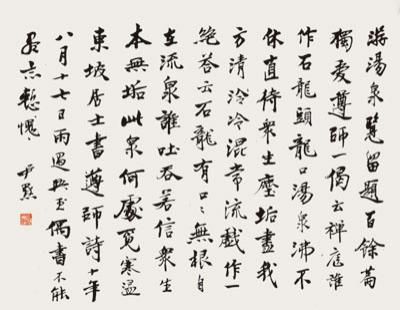 游湯泉覽留題百餘篇
獨愛遵師一偈云禪庭誰
作石龍頭龍口湯泉沸不
休直待衆生塵垢盡我
方清冷冷混常流戲作一
絶答云石龍有口口無根自
在流泉誰吐吞若信衆生
本無垢此泉何處覓寒温
東坡居士書遵師詩十年
八月十七日雨過興至偶書不能
慙愧 尹默